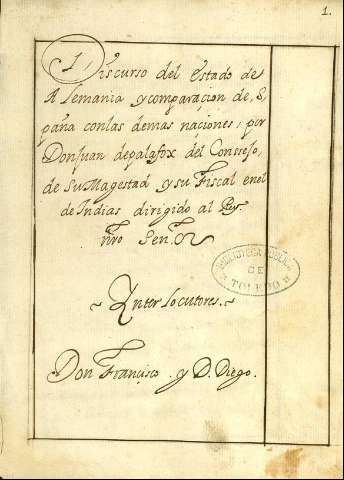 1.
1,
Discurso del estado de
Alemania y comparaçion de, es,
paña con las demas naciones, por
Don Juan de palafox del Conssejo,
de Su Magestad y su Fiscal en el
de Indias dirigido al Rey.
nro Senor
BIBLIOTECA
DE
TOLEDO
~ Ynterlocutores. ~
Don Françisco . y D. Diego .